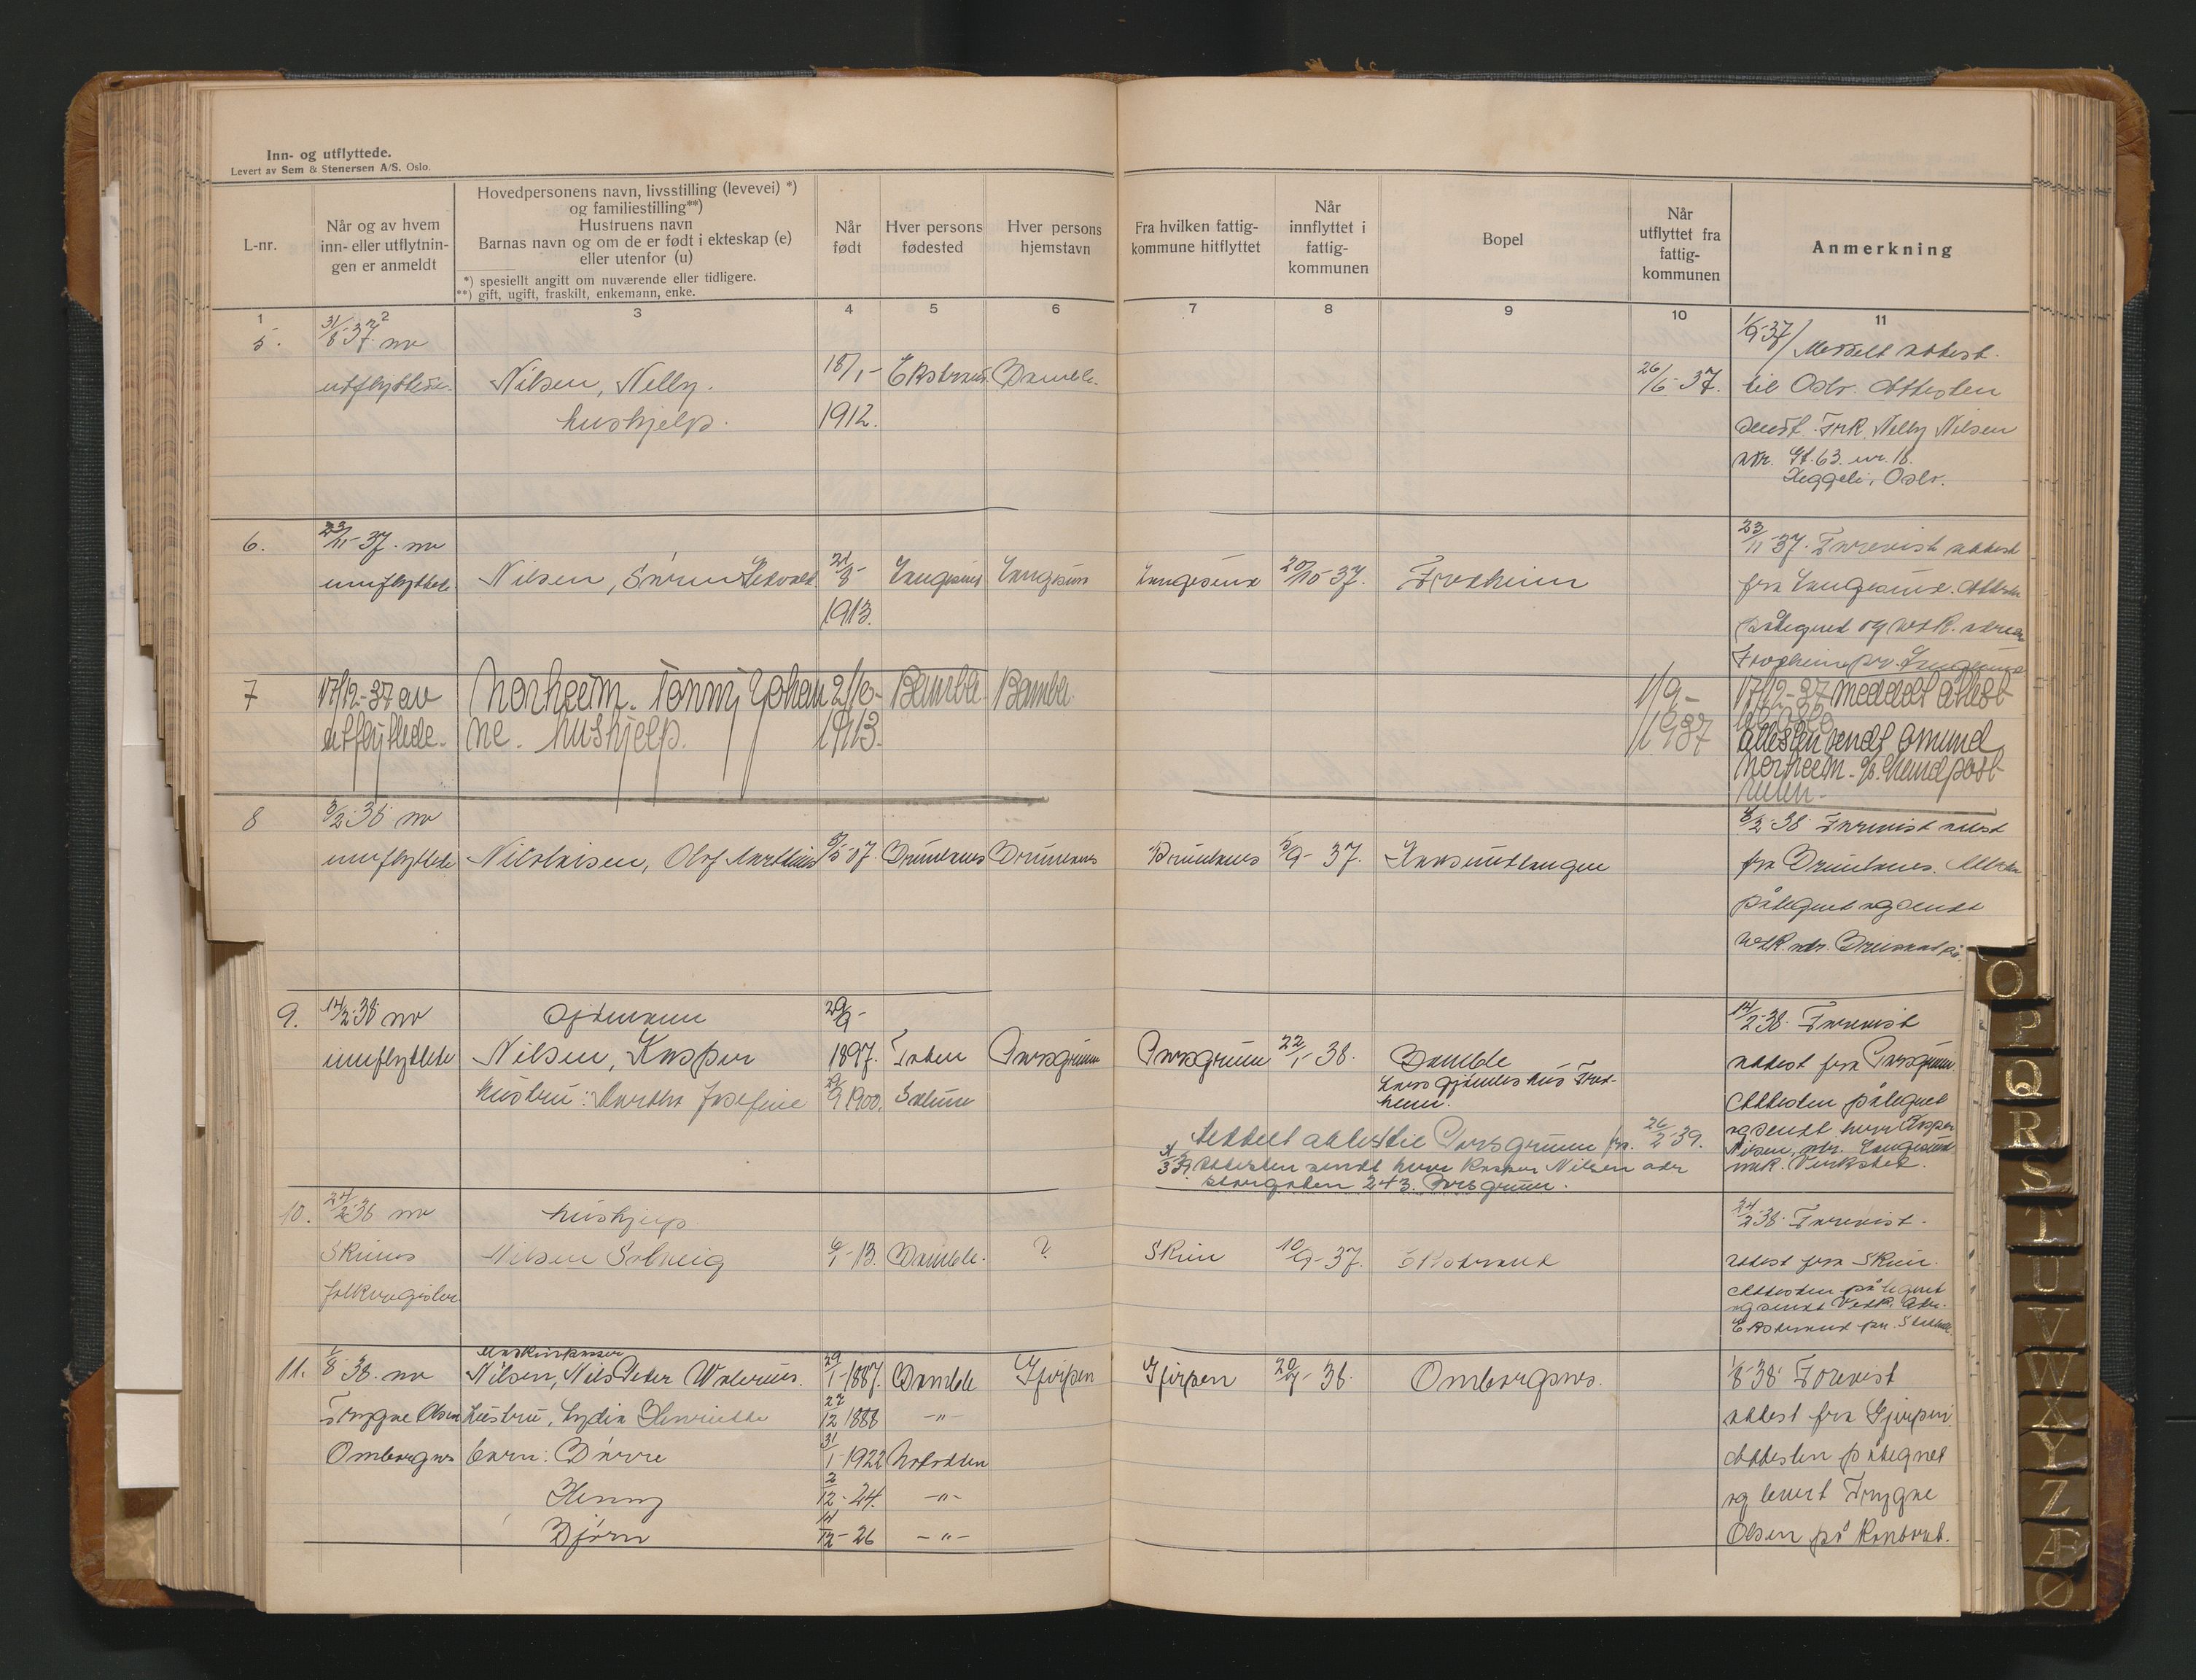 Inn- og utflyttede.
Levert av Sem & Stenersen A/S. Oslo.
L-nr.
Når og av hvem
inn- eller utflytnin-
gen er anmeldt
Hovedpersonens navn, livsstilling (levevei) *)
og familiestilling**)
Hustruens navn
Barnas navn og om de er født i ekteskap (e)
eller utenfor (u)
*) spesielt angitt om nuværende eller tidligere.
**) gift, ugift, fraskilt, enkemann, enke.
Når
født
Hver persons
fødested
Hver persons
hjemstavn
Fra hvilken fattig-
kommune hitflyttet
Når
innflyttet i
fattig-
kommunen
Bopel
Når
utflyttet fra
fattig-
kommunen
Anmerkning
1 3 4 5 6 7 8 9 10 11
5. 31/8-37. av 1/9-37/ Meddelt attest
utflyttede. Nilsen, Nelly. 18/1- Ekstrand. Bamble. 26/6-37. til Oslo. Attesten
hushjelp. 1912. sendt Frk. Nelly Nilsen
adr. Gt. 63. nr. 18.
Heggeli, Oslo.
6. 23/11-37. av 23/11-37. Forevist attest
innflyttede Nilsen, Søren 21/8- Langesund Langesund Langesund 20/10-37. Frodheim fra Langesund. Attesten
1913. påtegnet og
Frodheim pr. Langesund
7 17/12-37 av Norheim. Tonny Johan 2/10- Bamble Bamble 1/9- 17/12-37 meddelt attest
utflyttede. ne. hushjelp. 1913. 1937 til Oslo
attesten sendt Amund
Norheim
8 3/2-38 av 3/2-38 Forevist attest
innflyttede Nikolaisen, Olaf Martinius Brunlanes Brunlanes Brunlanes 5/9-37. fra Brunlanes. Attesten
påtegnet og sendt
9. 14/2-38 av Sjømann 29/9- 14/2-38. Forevist
innflyttede Nilsen, Kasper 1897. Porsgrunn Porsgrunn 22/1-38. Bamble attest fra Porsgrunn
hustru: Martha Josefine 1900. hus Frod-
heim. Attesten påtegnet
og sendt herr Kasper
Nilsen, adr. Langesund
mek. Verksted.
Meddelt attest til Porsgrunn fra 26/2-39.
Attesten sendt herr Kasper Nilsen adr
Storgaten 243. Porsgrunn.
10. 24/2-38 av hushjelp 24/2-38. Forevist.
Skiens Nilsen Solveig 6/1-13. Bamble. ? Skien 10/9-37. Ekstrand attest fra Skien.
folkeregister Attesten påtegnet
og sendt Vedk. Adr.
Ekstrand pr. Stathelle.
Maskinpasser
11. 1/8-38. av Nilsen, Nils Peder Valerius. 29/1-1887. Bamble Gjerpen Gjerpen 20/7-38. Omborgsnes. 1/8-38 Forevist
Trygve Olsen hustru, Lydia Henriette 22/12 1888 -"- attest fra Gjerpen.
Omborgsnes barn: Børre 31/1-1922 Notodden Attesten påtegnet
Henny 2/12-24. -"- og levert Trygve
Bjørn 14/12-26 -"- Olsen på kontoret.
O
P
Q
R
S
T
U
V
W
X
Y
Z
Æ
Ø